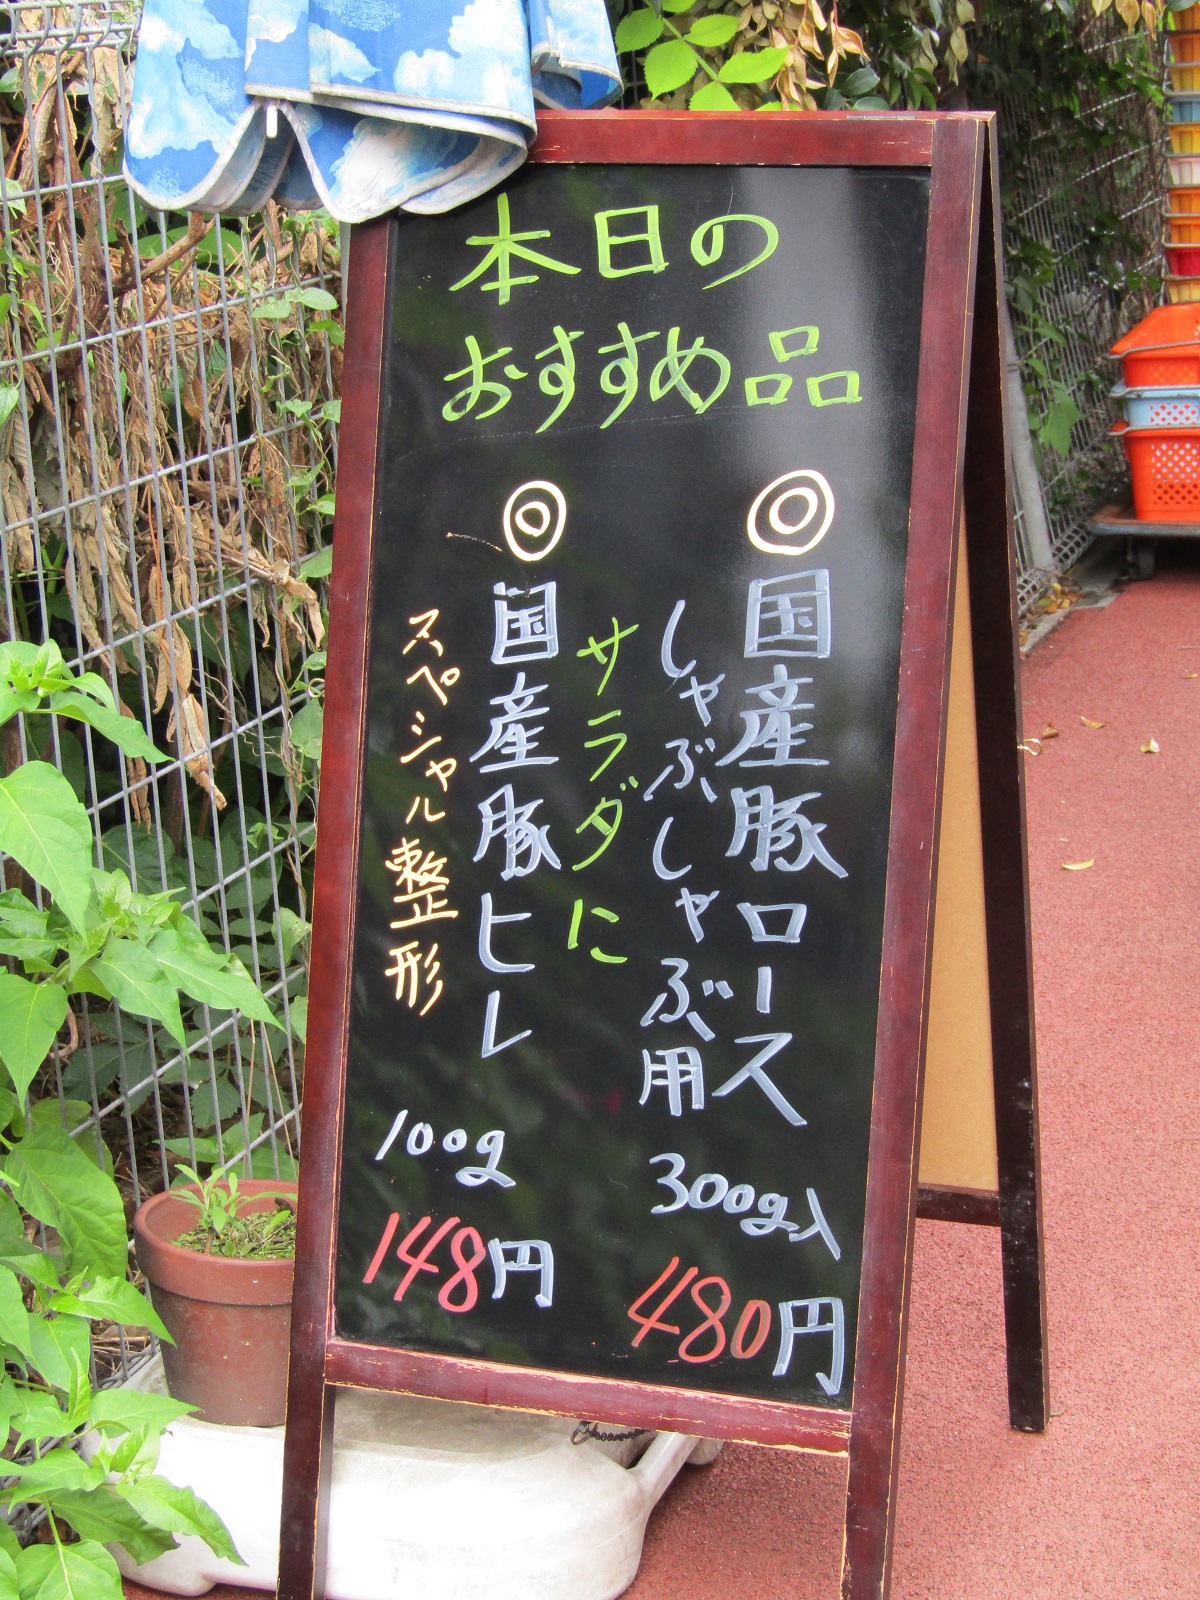 本日の
おすすめ品
◎国産豚ロース
しゃぶしゃぶ用
サラダに
300g入
480円
◎国産豚ヒレ
スペシャル整形
100g
148円